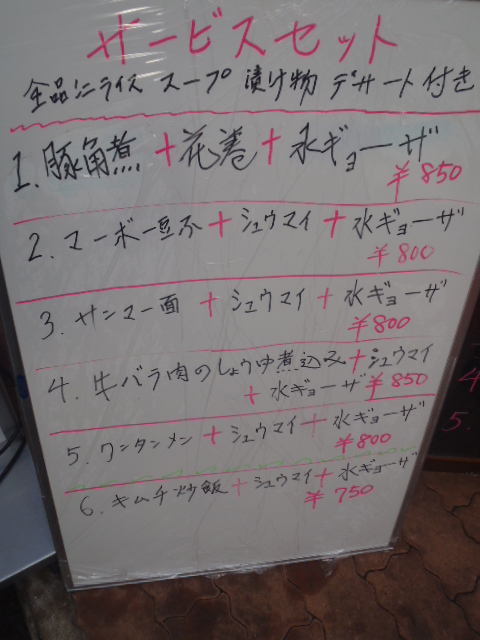 サービスセット
全品ミニライス スープ 漬け物 デザート付き
1. 豚角煮 + 花巻 + 水ギョーザ
¥850
2. マーボー豆フ + シュウマイ + 水ギョーザ
¥800
3. サンマー面 + シュウマイ + 水ギョーザ
¥800
4. 牛バラ肉のしょうゆ煮込み + シュウマイ
+ 水ギョーザ ¥850
5. ワンタンメン + シュウマイ + 水ギョーザ
¥800
6. キムチ炒飯 + シュウマイ + 水ギョーザ
¥750
4
5.